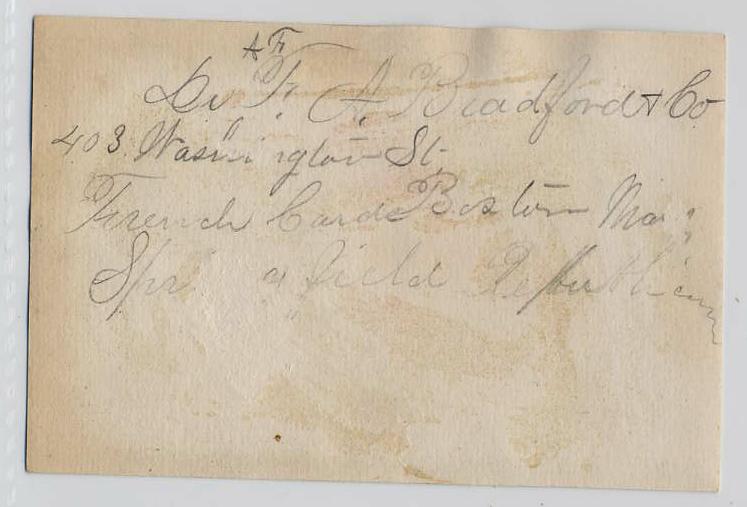 A F
Dr F. A. Bradford & Co
403 Washington St
French Cards Boston Mas
Springfield Republican